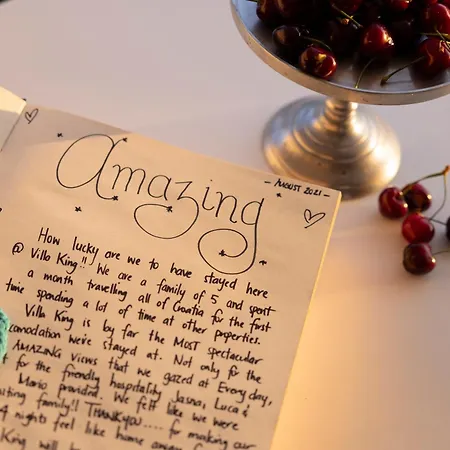 Amazing
- AUGUST 2021 -
How lucky are we to have stayed here
@ Villa King!! We are a family of 5 and spent
a month travelling all of Croatia for the first
time spending a lot of time at other properties.
Villa King is by far the MOST spectacular
comodation we've stayed at. Not only for the
AMAZING views that we gazed at Every day,
for the friendly hospitality Jasna, Luca &
Mario provided. We felt like we were
iting family!! THANKYOU.... for making our
4 nights feel like home away
King will